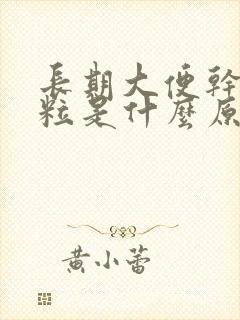 長期大便幹
粒是什麼原
黃小蕾